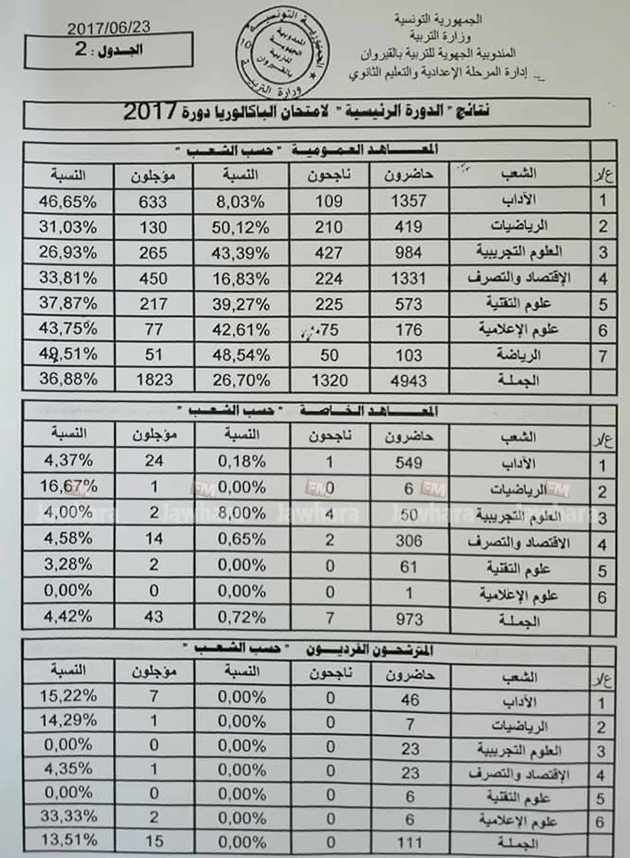 الجمهورية التونسية
وزارة التربية
المندوبية الجهوية للتربية بالقيروان
إدارة المرحلة الإعدادية والتعليم الثانوي
الجمهورية التونسية
المندوبية الجهوية للتربية بالقيروان
وزارة التربية
10
2017/06/23
الجدول : 2
نتائج "الدورة الرئيسية" لامتحان الباكالوريا دورة 2017
المعاهد العمومية " حسب الشعب "
ع/ر الشعب حاضرون ناجحون النسبة مؤجلون النسبة
1 الآداب 1357 109 8,03% 633 46,65%
2 الرياضيات 419 210 50,12% 130 31,03%
3 العلوم التجريبية 984 427 43,39% 265 26,93%
4 الإقتصاد والتصرف 1331 224 16,83% 450 33,81%
5 علوم التقنية 573 225 39,27% 217 37,87%
6 علوم الإعلامية 176 75 42,61% 77 43,75%
7 الرياضة 103 50 48,54% 51 49,51%
الجملة 4943 1320 26,70% 1823 36,88%
المعاهد الخاصة " حسب الشعب "
ع/ر الشعب حاضرون ناجحون النسبة مؤجلون النسبة
1 الآداب 549 1 0,18% 24 4,37%
2 الرياضيات 6 0 0,00% 1 16,67%
3 العلوم التجريبية 50 4 8,00% 2 4,00%
4 الاقتصاد والتصرف 306 2 0,65% 14 4,58%
5 علوم التقنية 61 0 0,00% 2 3,28%
6 علوم الإعلامية 1 0 0,00% 0 0,00%
الجملة 973 7 0,72% 43 4,42%
المترشحون الفرديون " حسب الشعب "
ع/ر الشعب حاضرون ناجحون النسبة مؤجلون النسبة
1 الآداب 46 0 0,00% 7 15,22%
2 الرياضيات 7 0 0,00% 1 14,29%
3 العلوم التجريبية 23 0 0,00% 0 0,00%
4 الإقتصاد والتصرف 23 0 0,00% 1 4,35%
5 علوم التقنية 6 0 0,00% 0 0,00%
6 علوم الإعلامية 6 0 0,00% 2 33,33%
الجملة 111 0 0,00% 15 13,51%
Jawhara FM
Jawhara FM
Jawhara FM
Jawhara FM
Jawhara FM